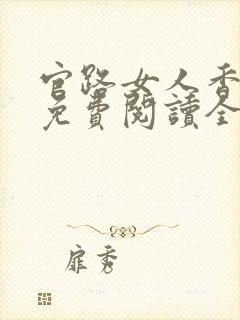 官路女人香
免費閱讀全
扉秀